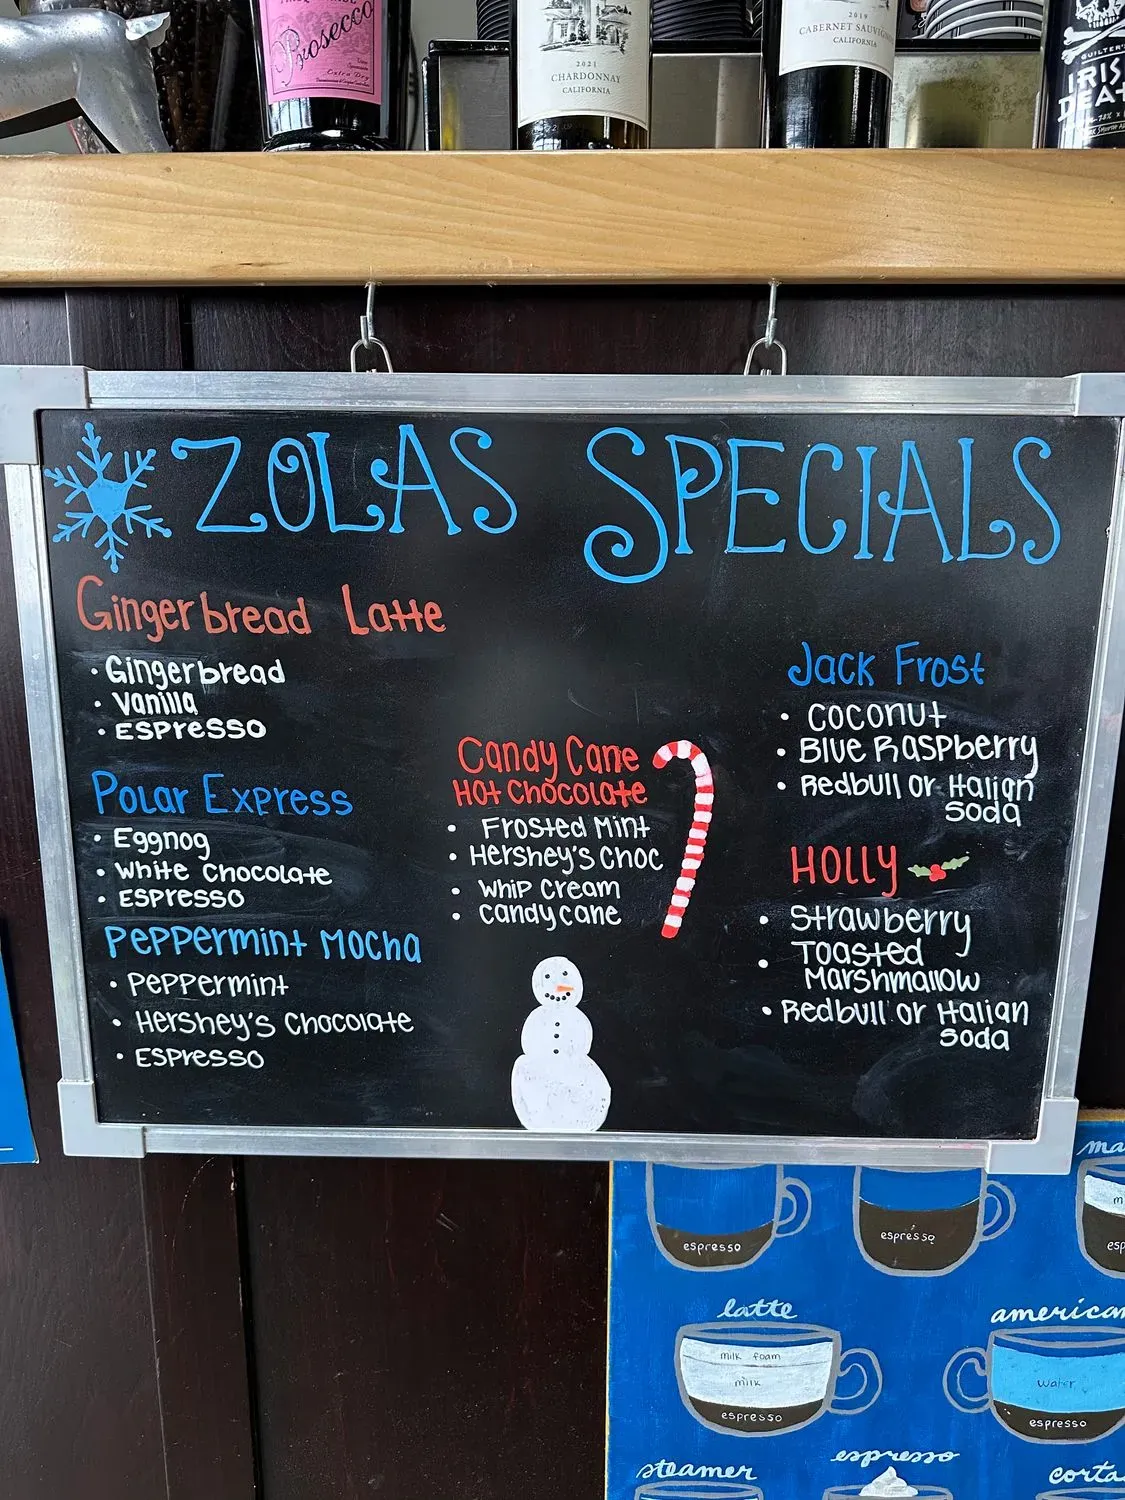 Prosecco
Extra Dry
2021
CHARDONNAY
CALIFORNIA
2019
CABERNET SAUVIGNON
CALIFORNIA
ZOLAS SPECIALS
Gingerbread Latte
• Gingerbread
• Vanilla
• Espresso
Polar Express
• Eggnog
• White Chocolate
• Espresso
Peppermint Mocha
• Peppermint
• Hershey's Chocolate
• Espresso
Candy Cane
Hot Chocolate
• Frosted Mint
• Hershey's Choc
• Whip Cream
• Candycane
Jack Frost
• Coconut
• Blue Raspberry
• Redbull or Italian
Soda
HOLLY
• Strawberry
• Toasted
Marshmallow
• Redbull or Italian
Soda
espresso
espresso
ma
m
esp
latte
milk foam
milk
espresso
american
water
espresso
steamer
espresso
corta